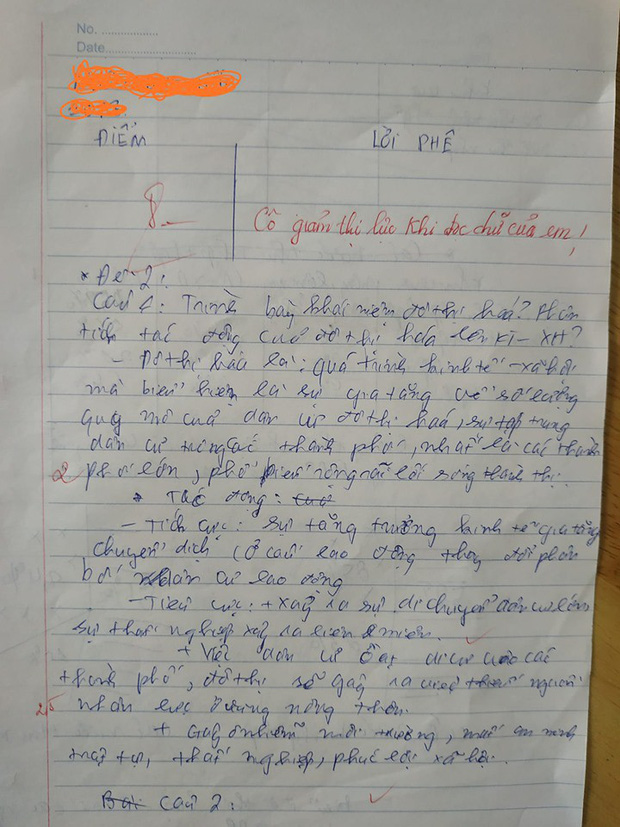 No. ..................
Date...........................
ĐIỂM
LỜI PHÊ
8.
Cô giảm thị lực khi đọc chữ của em!
* Đề 2:
Câu 1: Trình bày khái niệm đô thị hoá? Phân
tích tác động của đô thị hóa lên KT - XH?
- Đô thị hóa là: quá trình kinh tế - xã hội
mà biểu hiện là sự gia tăng về số lượng
quy mô của dân cư đô thị hoá, sự tập trung
dân cư trong các thành phố, nhất là các thành
2 phố lớn, phổ biến rộng rãi lối sống thành thị.
* Tác động:
- Tích cực: sự tăng trưởng kinh tế gia tăng
chuyển dịch cơ cấu lao động thay đổi phân
bố dân cư lao động
- Tiêu cực: + xảy ra sự di chuyển dân cư lớn
sự thất nghiệp xảy ra liên miên.
+ Việc dân cư ồ ạt di cư vào các
thành phố, đô thị sẽ gây ra việc thiếu nguồn
2,5 nhân lực ở vùng nông thôn.
+ Gây ô nhiễm môi trường, mất an ninh
trật tự, thất nghiệp, phúc lợi xã hội.
Bài Câu 2: